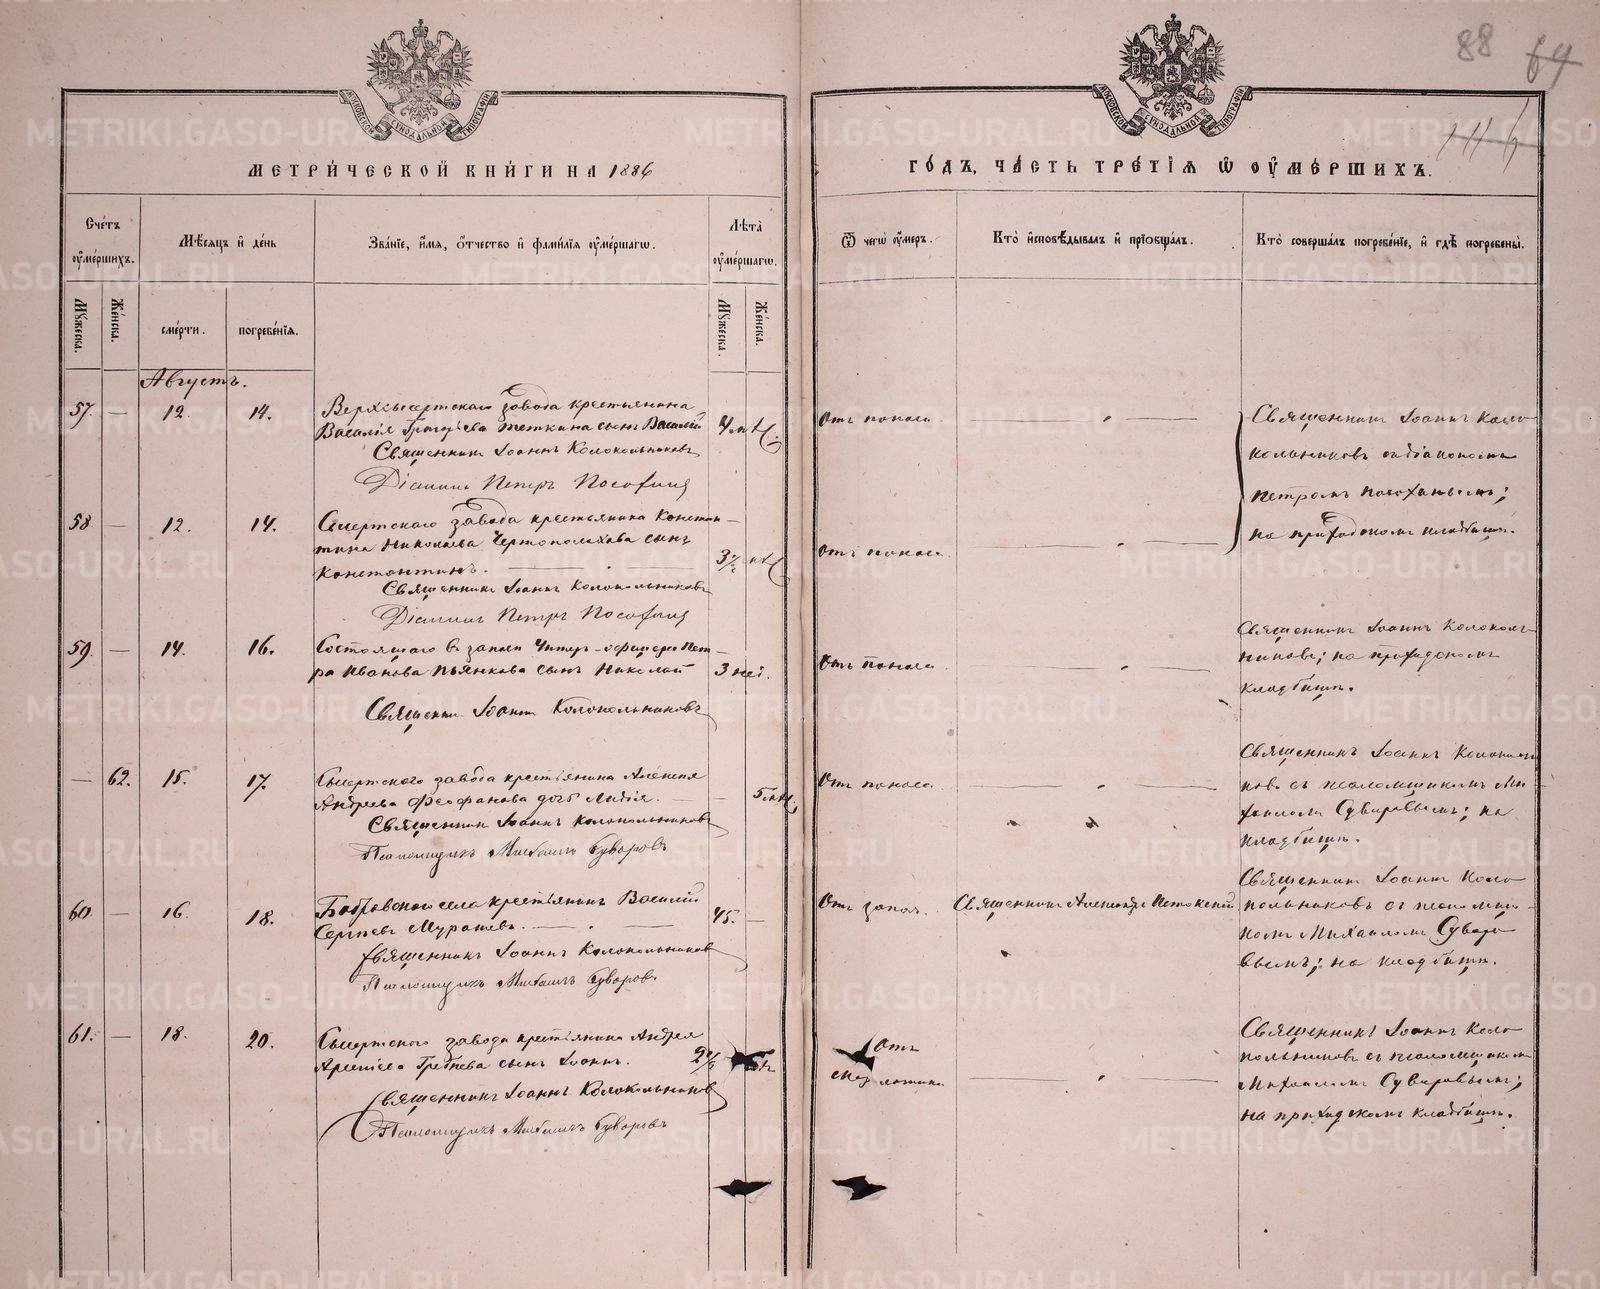 88 64
116
МЕТРИ́ЧЕСКОЙ КНИ́ГИ НА 1886
ГО́ДЪ, ЧА́СТЬ ТРЕ́ТІѦ Ѿ ОУМЕ́РШИХЪ.
Сче́тъ оумершихъ.
Мѣ́сяцъ и де́нь
Зва́ніе, и́мя, о́тчество и фами́лія оуме́ршагѡ.
Лѣта̀ оуме́ршагѡ.
Ѿ чегѡ̀ оу́меръ.
Кто̀ исповѣ́дывалъ и пріѡбща́лъ.
Кто̀ соверша́лъ погребе́ніе, и гдѣ̀ погребены̀.
Му́жеска.
Же́нска.
сме́рти.
погребе́нія.
Му́жеска.
Же́нска.
Августъ.
57. — 12. 14.
Верхсысертскаго завода крестьянина
Василія Григорьева Теткина сынъ Василій
Священникъ Іоаннъ Колокольниковъ
Діаконъ Петръ
4 м
Отъ поноса
Священникъ Іоаннъ Коло
кольниковъ съ діакономъ
Петромъ
на приходскомъ кладбищѣ.
58 — 12. 14.
Сысертскаго завода крестьянина Констан—
тина Николаева Чертополохова сынъ
Константинъ.
Священникъ Іоаннъ Колокольниковъ
Діаконъ Петръ
3½
Отъ поноса
59. — 14. 16.
Состоящаго въ запасѣ Унтеръ-офицера Пет—
ра Иванова Пьянкова сынъ Николай
Священникъ Іоаннъ Колокольниковъ
3 нед.
Отъ поноса
Священникъ Іоаннъ Колоколь
никовъ; на приходскомъ
кладбищѣ.
— 62. 15. 17.
Сысертскаго завода крестьянина Алексѣя
Андреева Феофанова дочь Лидія.
Священникъ Іоаннъ Колокольниковъ
Псаломщикъ Михаилъ Суворовъ
5
Отъ поноса
Священникъ Іоаннъ Колокольни
ковъ съ псаломщикомъ Ми
хаиломъ Суворовымъ; на
кладбищѣ.
60. — 16. 18.
Бобровскаго села крестьянинъ Василій
Сергѣевъ
Священникъ Іоаннъ Колокольниковъ
Псаломщикъ Михаилъ Суворовъ.
45. —
Отъ запоя.
Священникъ Александръ
Священникъ Іоаннъ Коло
кольниковъ съ псаломщи—
комъ Михаиломъ Суворо
вымъ; на кладбищѣ.
61. — 18. 20.
Сысертскаго завода крестьянина Андрея
Сынъ Іоаннъ.
Священникъ Іоаннъ Колокольниковъ
Псаломщикъ Михаилъ Суворовъ
Отъ
Священникъ Іоаннъ Коло
кольниковъ съ псаломщикомъ
Михаиломъ Суворовымъ;
на приходскомъ кладбищѣ.
METRIKI.GASO-URAL.RU